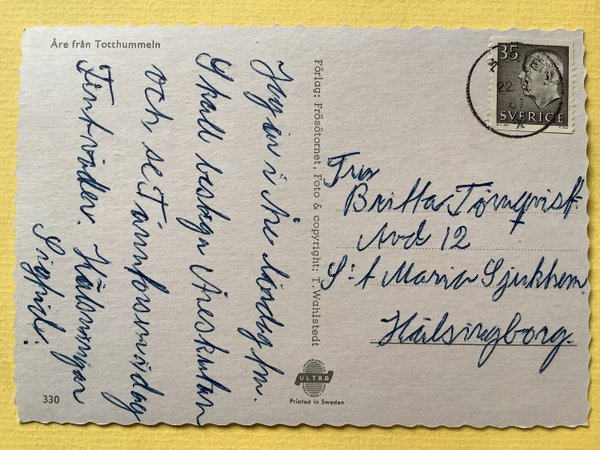 Åre från Totthummeln
Jag är i Åre lördag fm.
Skall bestiga Åreskutan
och se Tännforsen idag
Fint väder. Hälsningar
Sigfrid.
Förlag: Frösötornet. Foto & copyright: T. Wahlstedt
35
SVERIGE
22.
67
Fru
Britta Törnqvist
Avd 12
S:t Maria Sjukhem
Hälsingborg.
ULTRA
Printed in Sweden
330